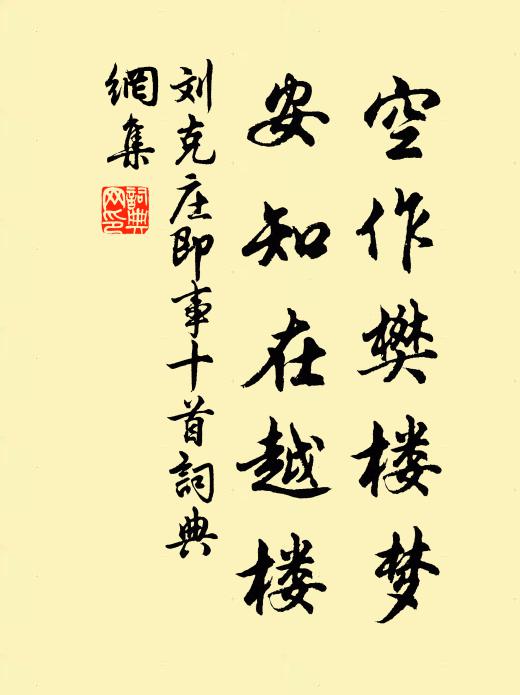 空作樊楼梦
安知在越楼
刘克庄即事十首詞典
網集
詞典
网印